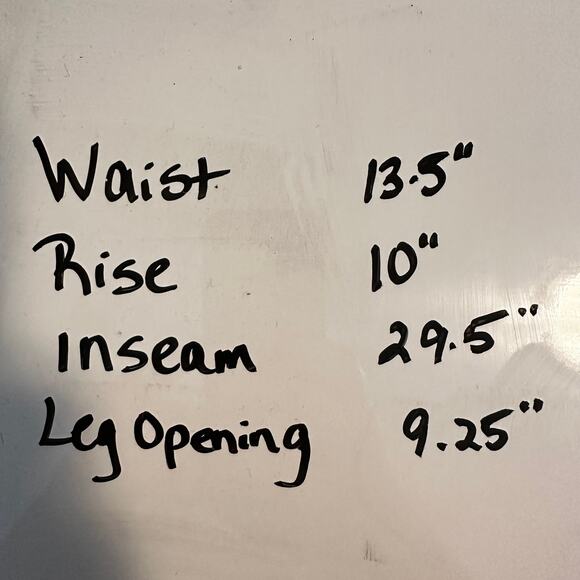 Waist 13.5"
Rise 10"
Inseam 29.5"
Leg Opening 9.25"